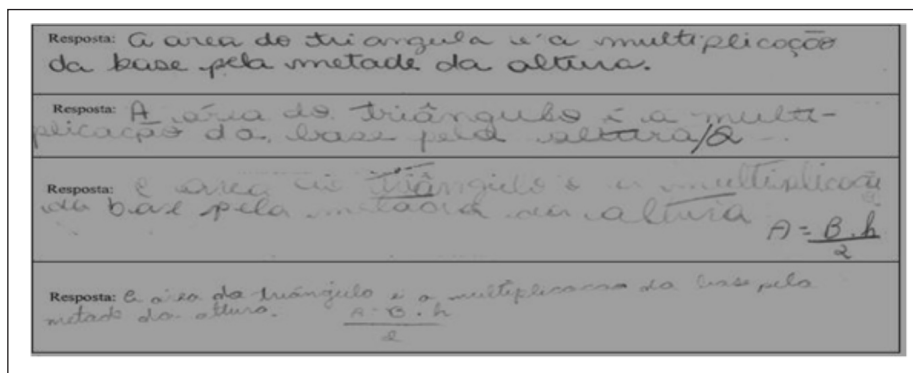 Resposta: A area do triangula e' a multiplicoção
da base pela metade da altura.
Resposta: A área do triângulo é a multi-
plicação da base pela altura/2
Resposta: area triângulo
da base pela altura
A = B . h
2
Resposta: A área da triângulo e a multiplicacao da base pela
metade da altura.
A = B . h
2